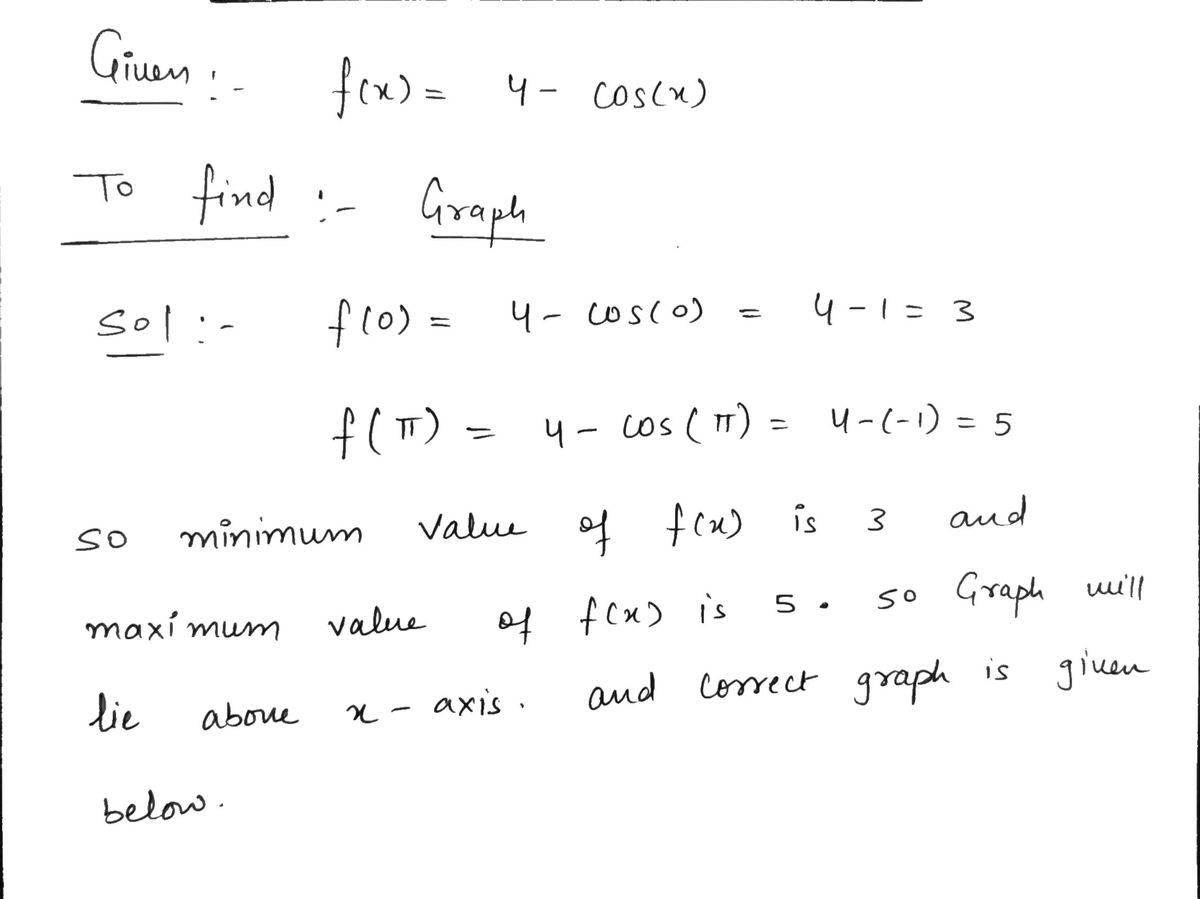 Given :- f(x) = 4 - cos(x)
To find :- Graph
Sol :- f(0) = 4 - cos(0) = 4 - 1 = 3
f(π) = 4 - cos(π) = 4-(-1) = 5
so minimum value of f(x) is 3 and
maximum value of f(x) is 5. so Graph will
lie above x - axis. and correct graph is given
below.